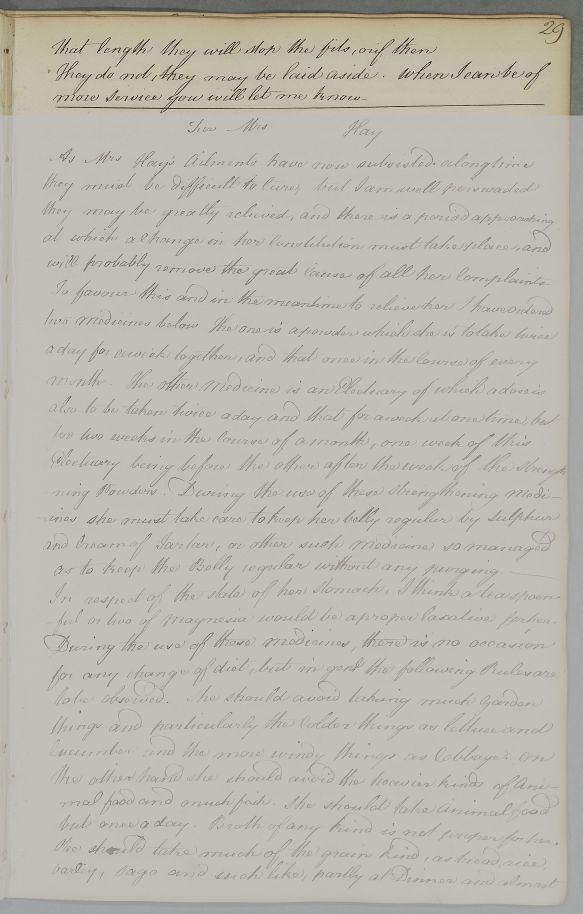 29
that length they will stop the fits, or if then
They do not, they may be laid aside. When I can be of
more service you will let me know.
For Mrs Hay
As Mrs Hay's Ailments have now subsisted a long time
they must be difficult to Cure, but I am well perswaded
they may be greatly relieved, and there is a period approaching
at which a Change in her Constitution must take place, and
will probably remove the great cause of all her Complaints.
To favour this and in the meantime to relieve her I have orderd
two medicines below the one is a powder which she is to take twice
a day for a week together, and that once in the course of every
month. The other Medicine is an Electuary of which a dose is
also to be taken twice a day and that for a week at one time, but
for two weeks in the Course of a month, one week of this
Electuary being before the other after the week of the Strength-
ning Powders. During the use of these Strengthening Medi-
cines she must take care to keep her belly regular by Sulphur
and Cream of Tartar, or other such Medicine so managed
as to keep the Belly regular without any purging
In respect of the state of her Stomach, I think a teaspoon-
-ful or two of magnesia would be a proper laxative for her.
During the use of these medicines, there is no occasion
for any change of diet, but in genl the following Rules are
to be observed. She should avoid taking much Garden
things and particularly the Colder things as lettuce and
Cucumber and the more windy things as Cabbage. On
the other hand she should avoid the heavier kinds of Ani-
mal food and much fish. She should take Animal food
but once a day. Broth of any kind is not proper for her.
She should take much of the grain kind, as bread, rice,
barley, Sago and such like, partly at Dinner and almost